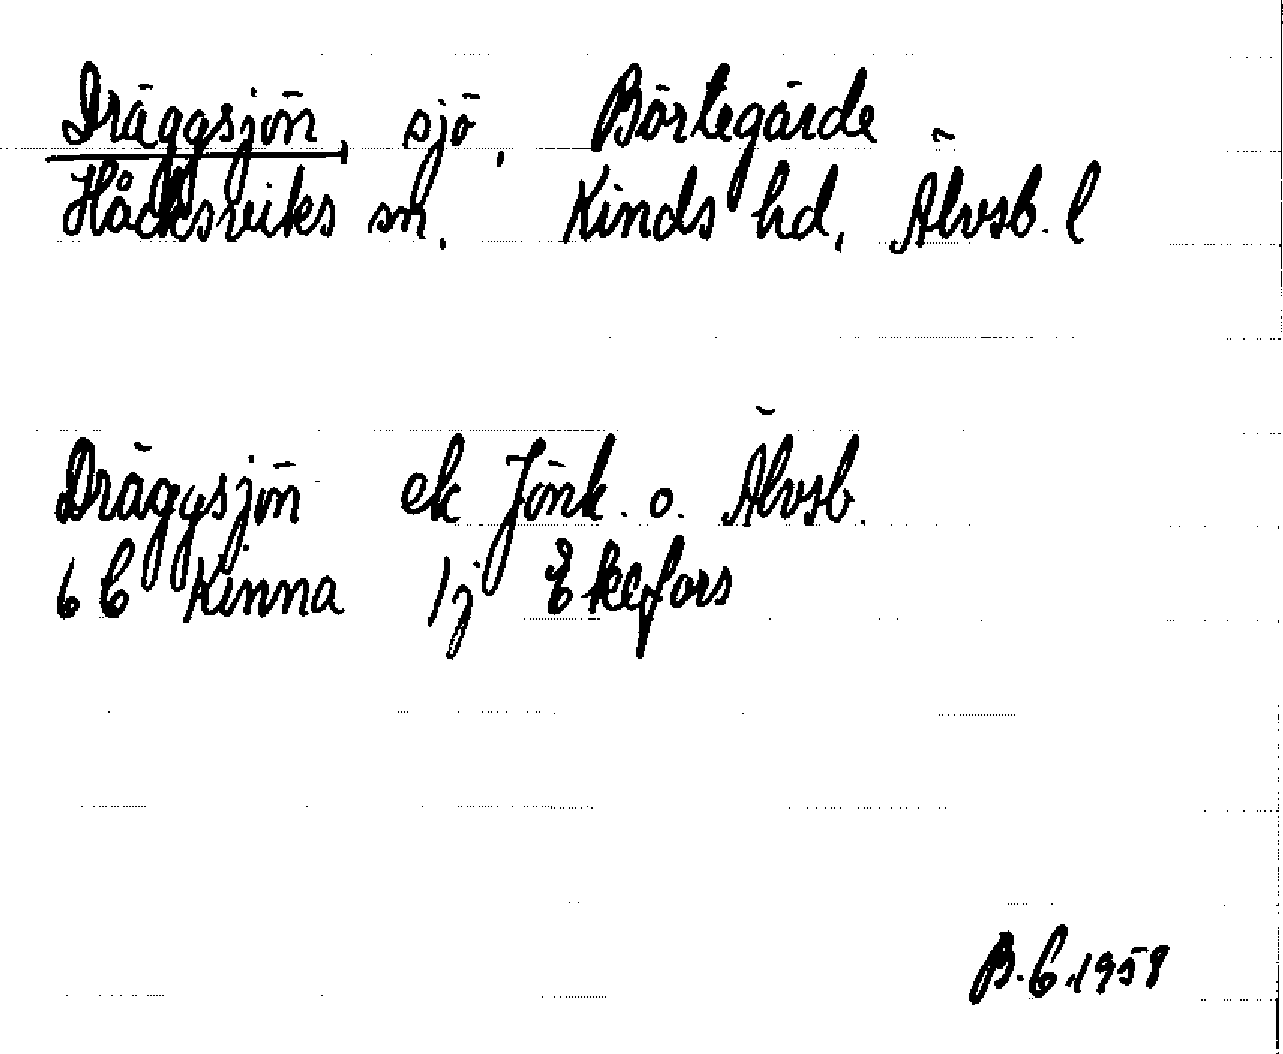 Dräggsjön, sjö, Börtegärde
Håcksviks sn. Kinds hd, Älvsb. l
Dräggsjön ek Jönk. o. Älvsb.
6 C Kinna 1j Ekefors
B.C. 1958